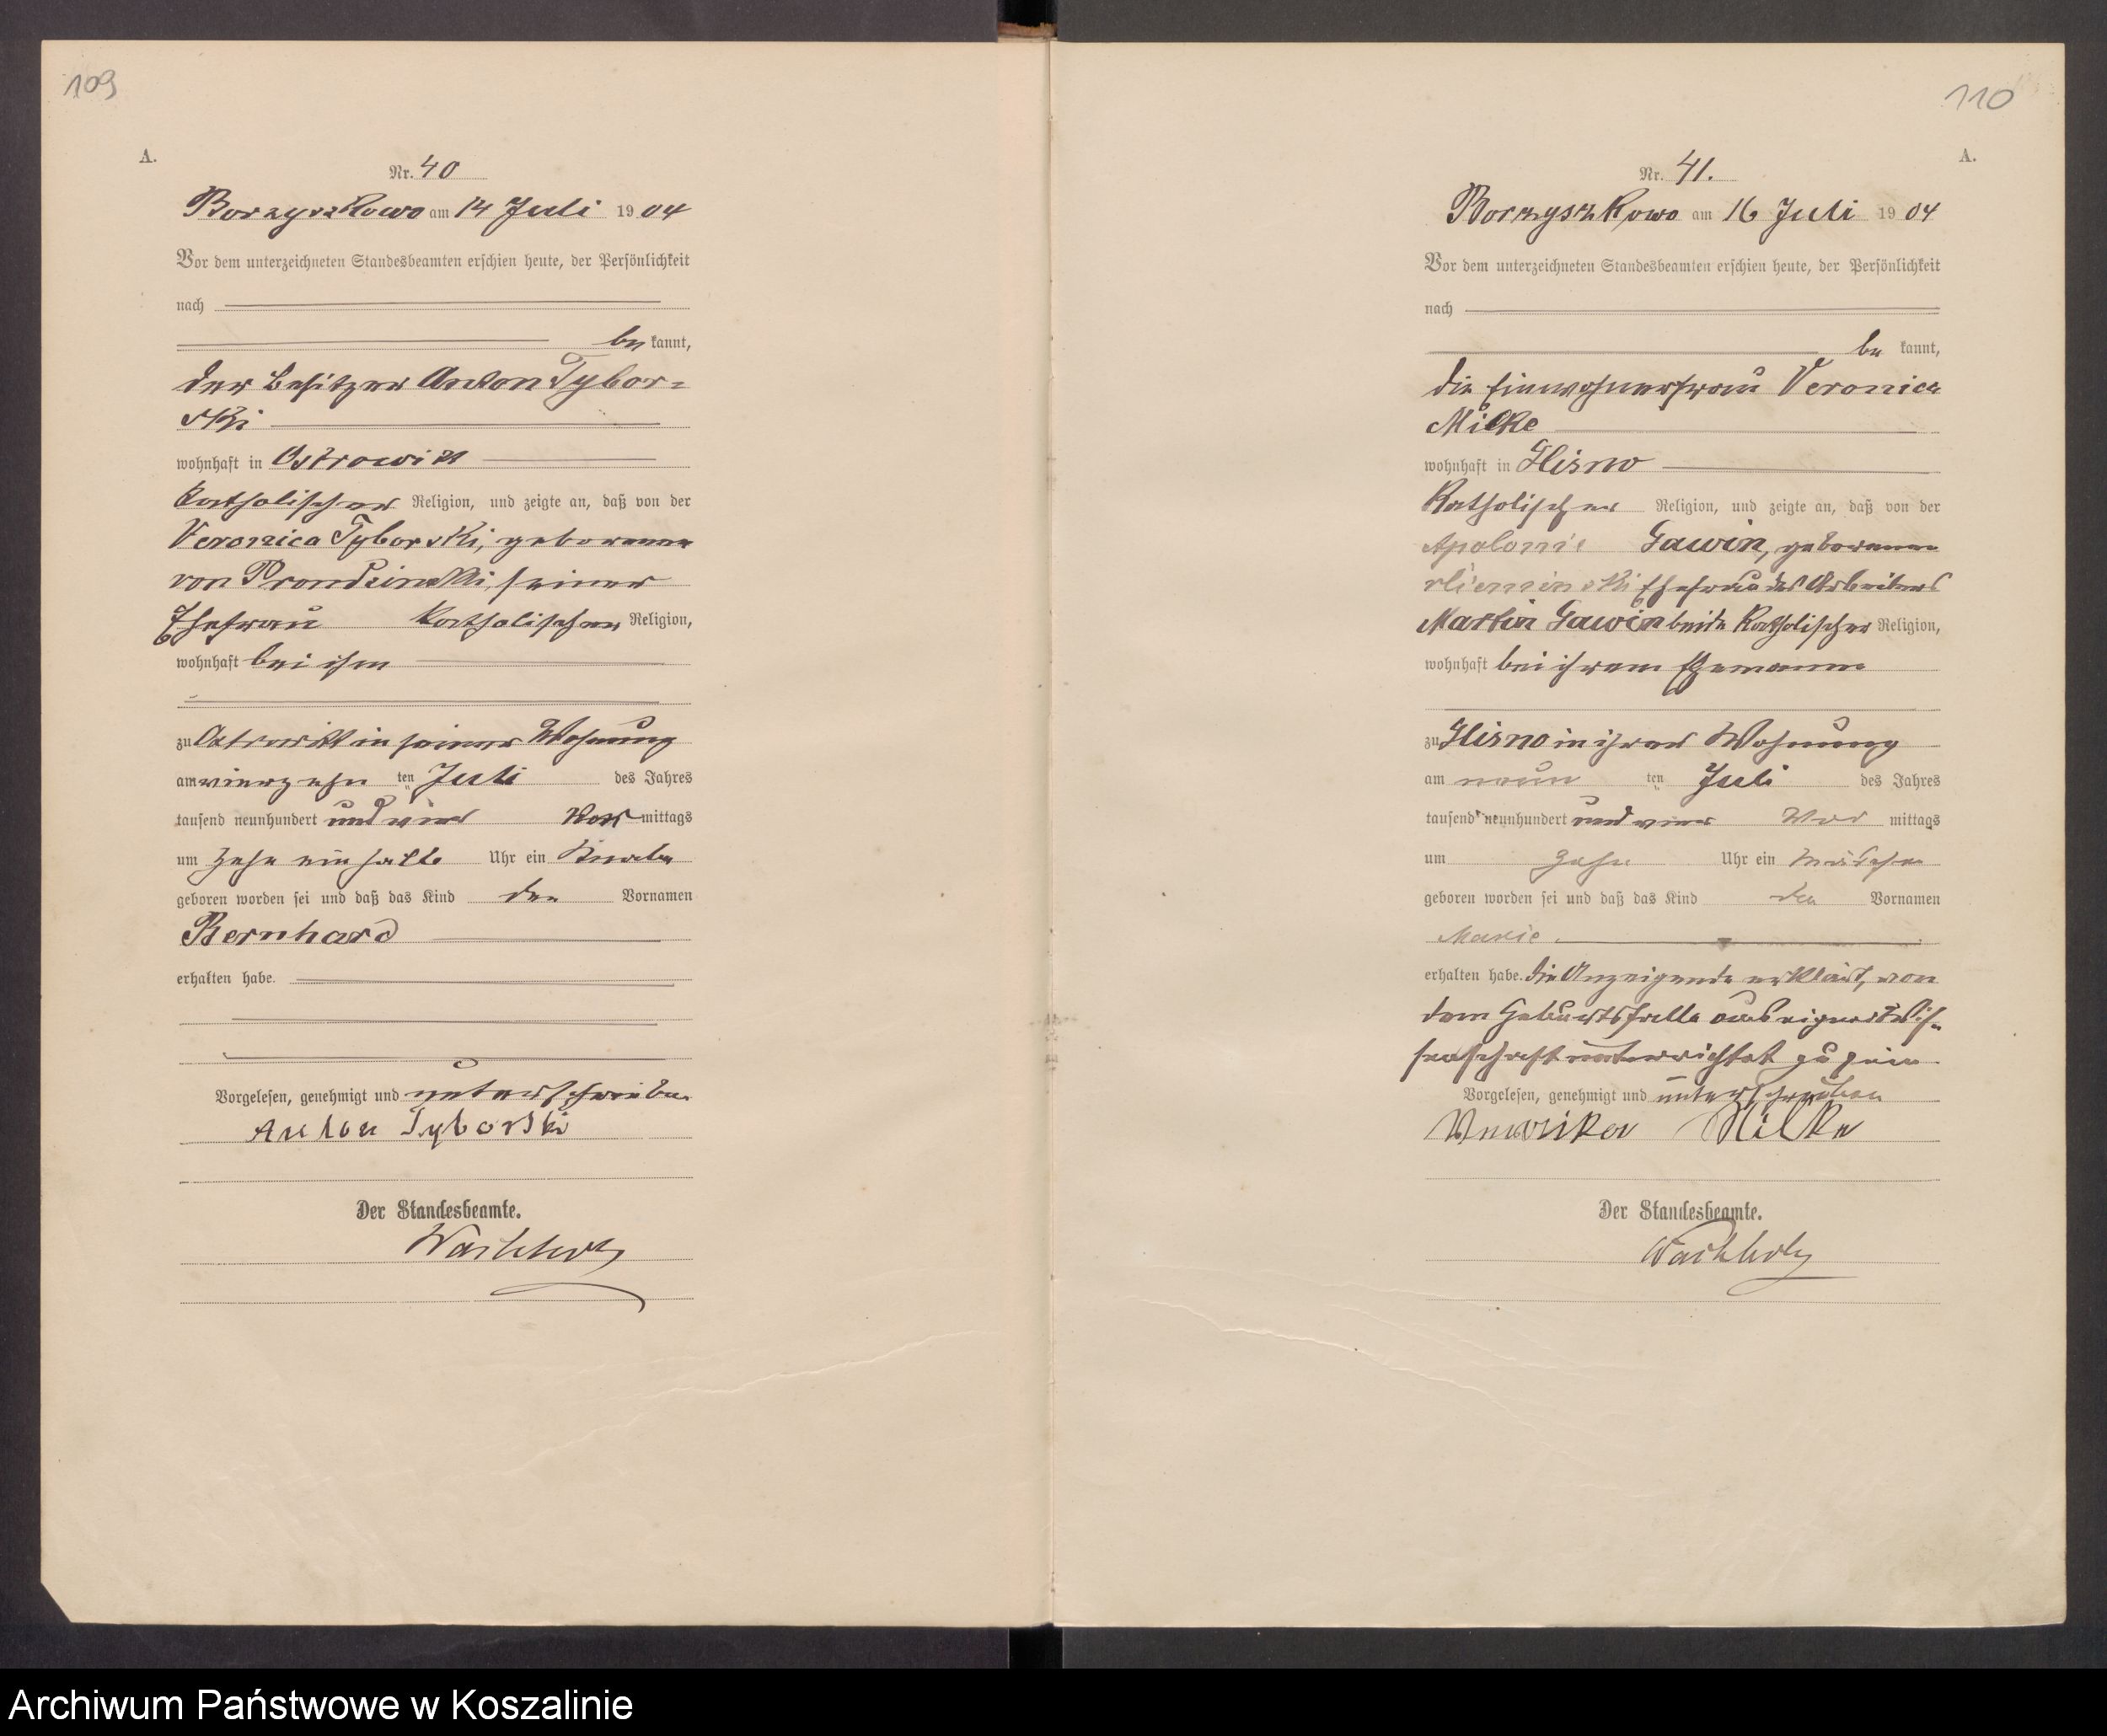 109
A.
Nr. 40
Borzyszkowo am 14 Juli 1904
Vor dem unterzeichneten Standesbeamten erschien heute, der Persönlichkeit
nach
be kannt,
der Besitzer Anton Tybor-
ski
wohnhaft in Ostrowitt
katholischer Religion, und zeigte an, daß von der
Veronica Tyborski, geborenen
von Prondzinski, seiner
Ehefrau katholischer Religion,
wohnhaft bei ihm
zu Ostrowitt in seiner Wohnung
am vierzehn ten Juli des Jahres
tausend neunhundert und vier Vor mittags
um zehn ein halb Uhr ein Knabe
geboren worden sei und daß das Kind den Vornamen
Bernhard
erhalten habe.
Vorgelesen, genehmigt und unterschrieben
Anton Tyborski
Der Standesbeamte.
Wachholz
110
A.
Nr. 41.
Borzyszkowo am 16 Juli 1904
Vor dem unterzeichneten Standesbeamten erschien heute, der Persönlichkeit
nach
be kannt,
die Einwohnerfrau Veronica
Milke
wohnhaft in Glisno
Katholischer Religion, und zeigte an, daß von der
Apolonie Gawin, geborenen
Ehefrau des Arbeiters
Martin Gawin beide Katholischer Religion,
wohnhaft bei ihrem Ehemanne
zu Glisno in ihrer Wohnung
am neun ten Juli des Jahres
tausend neunhundert und vier Vor mittags
um zehn Uhr ein Mädchen
geboren worden sei und daß das Kind den Vornamen
Marie
erhalten habe. Die Anzeigende erklärt, von
dem Geburtsfalle aus eigner Wis-
senschaft unterrichtet zu sein
Vorgelesen, genehmigt und unterschrieben
Weronika Milke
Der Standesbeamte.
Wachholz
Archiwum Państwowe w Koszalinie